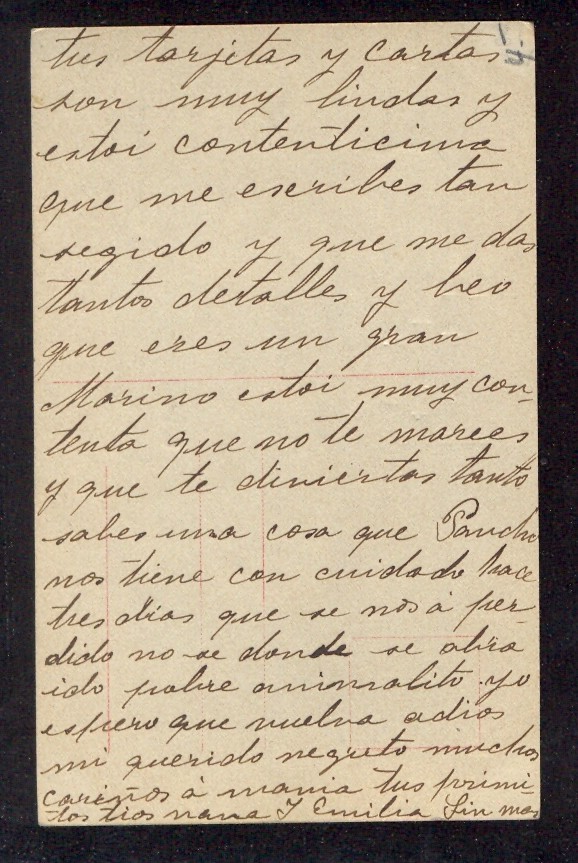 tus tarjetas y cartas
son muy lindas y
estoi contenticima
que me escribes tan
segido y que me das
tantos detalles y beo
que eres un gran
Marino estoi muy con-
tenta que no te marees
y que te diviertas tanto
sabes una cosa que Pancho
nos tiene con cuidado hace
tres dias que se nos á per-
dido no se donde se abra
ido pobre animalito yo
espero que vuelva adios
mi querido negrito muchos
cariños á mamia tus primi-
tos tios nana y Emilia Sin mas